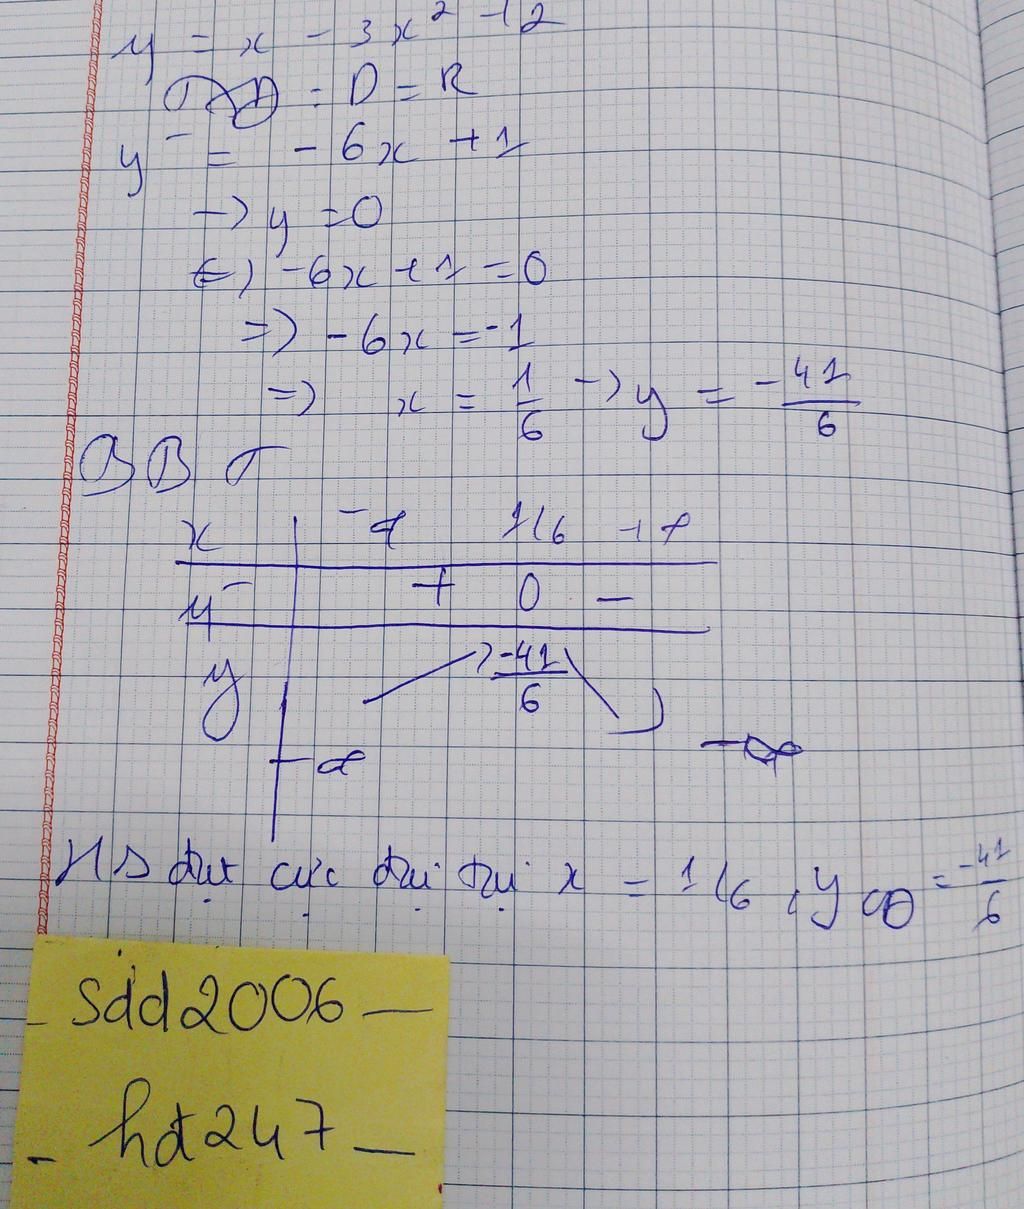 y = x - 3x² + 2
TXD : D = R
y' = - 6x + 1
→ y = 0
⇔ -6x + 1 = 0
⇒ -6x = -1
⇒ x = 1/6 → y = -41/6
BBT
x -∞ 1/6 +∞
y' + 0 -
y -41/6
-∞ -∞
HS đạt cực đại tại x = 1/6, yCĐ = -41/6
- sdd2006 -
- hd247 -